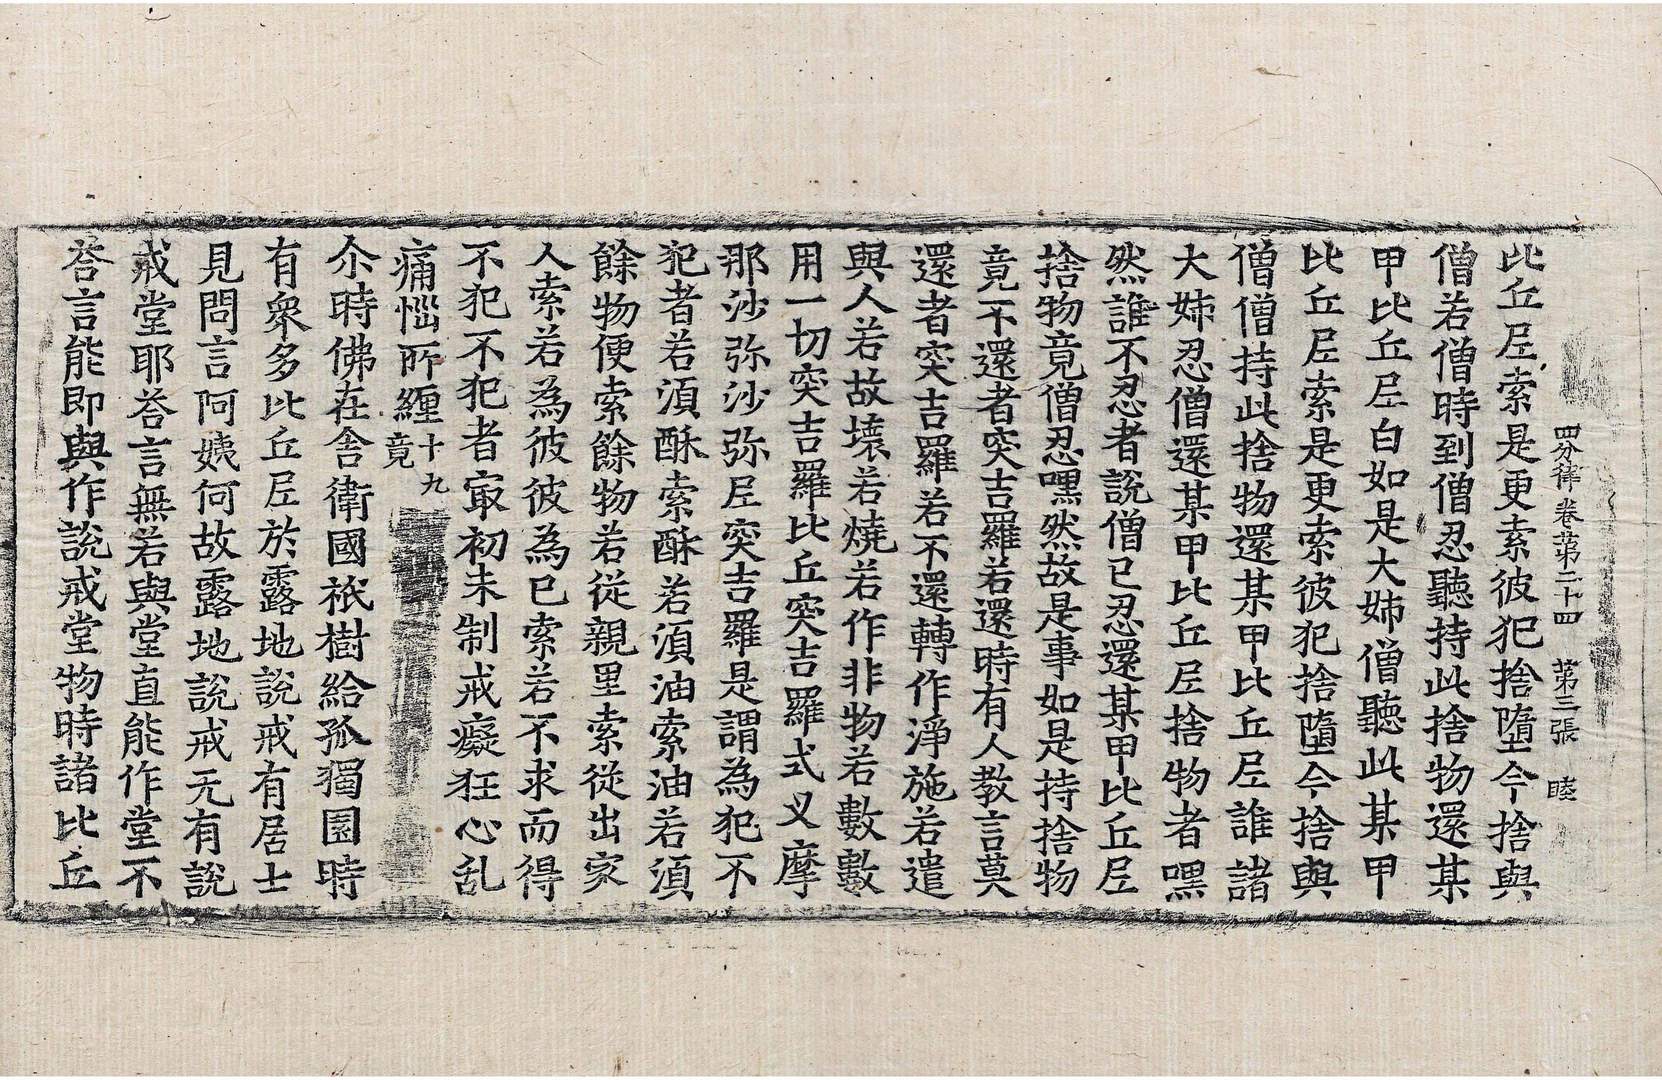 四分律卷第二十四 第三張 睦
比丘尼索是更索彼犯捨墮今捨與
僧若僧時到僧忍聽持此捨物還某
甲比丘尼白如是大姊僧聽此某甲
比丘尼索是更索彼犯捨墮今捨與
僧僧持此捨物還某甲比丘尼誰諸
大姊忍僧還某甲比丘尼捨物者嘿
然誰不忍者說僧已忍還某甲比丘尼
捨物竟僧忍嘿然故是事如是持捨物
竟不還者突吉羅若還時有人教言莫
還者突吉羅若不還轉作淨施若遣
與人若故壞若燒若作非物若數數
用一切突吉羅比丘突吉羅式叉摩
那沙弥沙弥尼突吉羅是謂為犯不
犯者若湏酥索酥若湏油索油若湏
餘物便索餘物若從親里索從出家
人索若為彼彼為己索若不求而得
不犯不犯者㝡初未制戒癡狂心乱
痛惱所纏十九竟
尒時佛在舍衛國祇樹給孤獨園時
有衆多比丘尼於露地說戒有居士
見問言阿姨何故露地說戒无有說
戒堂耶荅言無若與堂直能作堂不
荅言能即與作說戒堂物時諸比丘